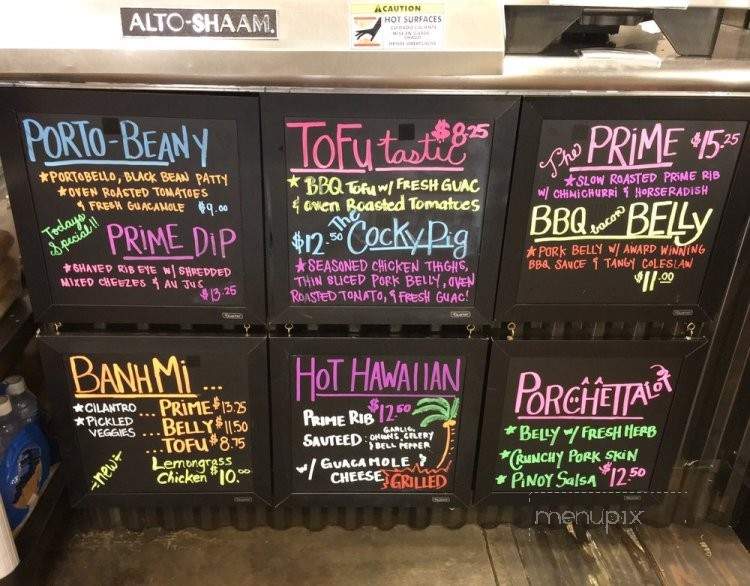 ALTO-SHAAM.
CAUTION
HOT SURFACES
PORTO-BEANY
★PORTOBELLO, BLACK BEAN PATTY
★OVEN ROASTED TOMATOES
& FRESH GUACAMOLE $9.00
Todays Special!!
PRIME DIP
★SHAVED RIB EYE W/ SHREDDED
MIXED CHEEZES & AU JUS
$13.25
TOFUtastic $8.25
★BBQ TOFU W/ FRESH GUAC
& oven Roasted Tomatoes
$12.50 The CockyPig
★SEASONED CHICKEN THIGHS,
THIN SLICED PORK BELLY, OVEN
ROASTED TOMATO, & FRESH GUAC!
The PRIME $15.25
★SLOW ROASTED PRIME RIB
W/ CHIMICHURRI & HORSERADISH
BBQ bacon BELLY
★PORK BELLY W/ AWARD WINNING
BBQ SAUCE & TANGY COLESLAW
$11.00
BANH MI ...
★CILANTRO ... PRIME $13.25
★PICKLED VEGGIES ... BELLY $11.50
... TOFU $8.75
-new- Lemongrass
Chicken $10.00
HOT HAWAIIAN
PRIME RIB $12.50
SAUTEED: GARLIC, ONIONS, CELERY
& BELL PEPPER
W/ GUACAMOLE &
CHEESE GRILLED
PORCHETTALOT
★BELLY W/ FRESH HERB
★CRUNCHY PORK SKIN
★PINOY SALSA $12.50
menupix